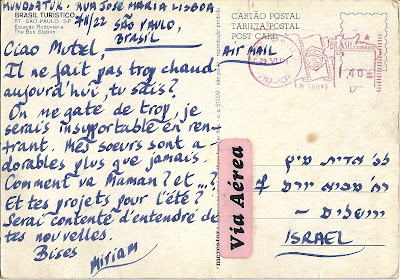 RUA JOSÉ MARIA LISBOA
BRASIL TURÍSTICO
57 - SÃO PAULO - SP
Estação Rodoviária
The Bus Station
SÃO PAULO,
BRASIL
Ciao Motel,
Il ne fait pas trop chaud
aujourd'hui, tu sais?
On me gate de trop, je
serais insupportable en ren-
trant. Mes soeurs sont a-
dorables plus que jamais.
Comment va Maman? et...?
Et tes projets pour l'été?
Serai contente d'entendre de
tes nouvelles.
Bises
Miriam
CARTÃO POSTAL
TARJETA POSTAL
POST CARD
AIR MAIL
BRASIL
Via Aérea
רח' מבוא יורם 7
ירושלים -
ISRAEL